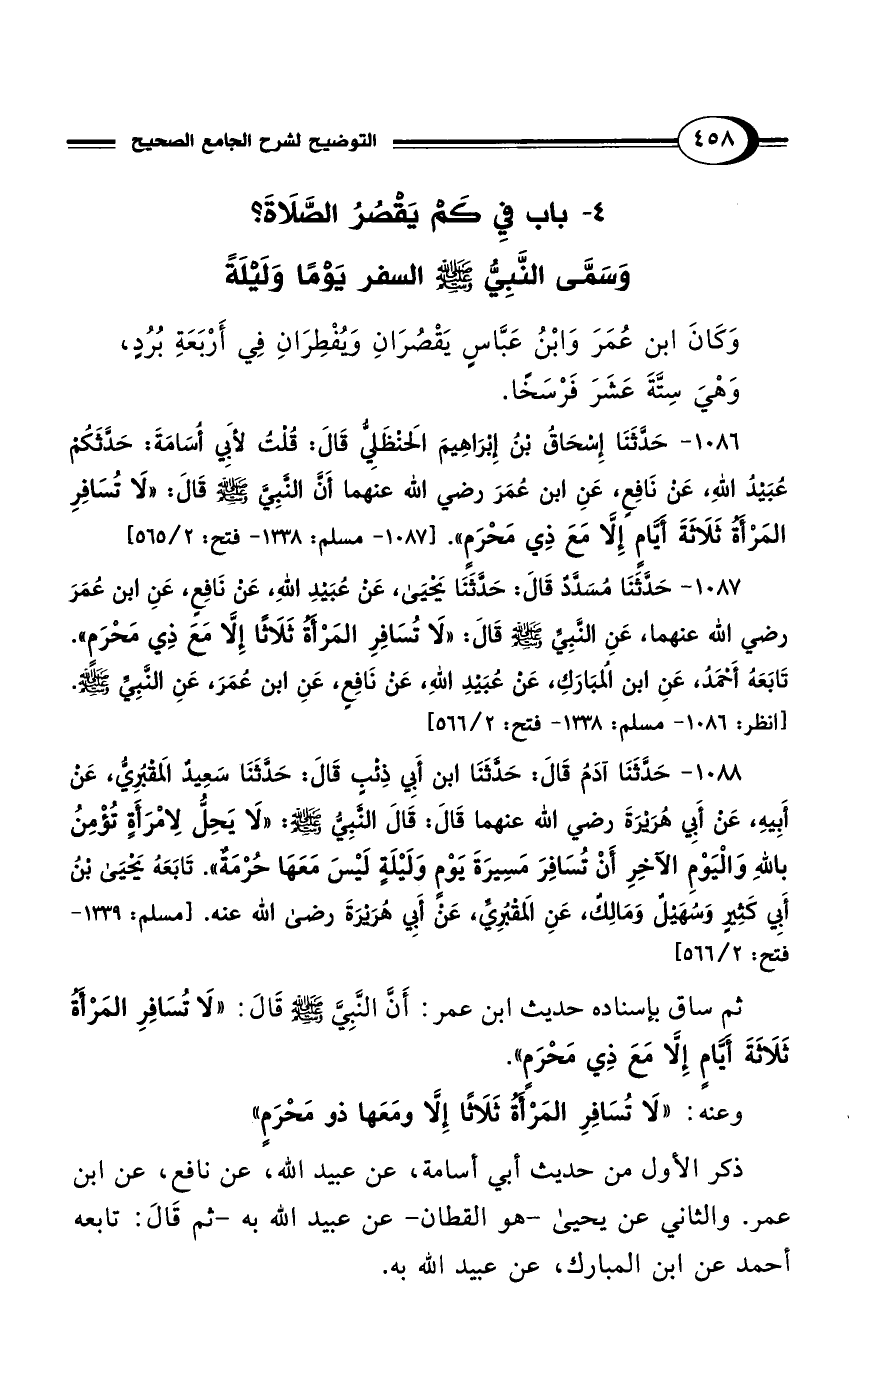 ٤٥٨ التوضيح لشرح الجامع الصحيح
٤- باب فِي كَمْ يَقْصُرُ الصَّلَاةَ؟
وَسَمَّى النَّبِيُّ ﷺ السفر يَوْمًا وَلَيْلَةً
وَكَانَ ابن عُمَرَ وَابْنُ عَبَّاسٍ يَقْصُرَانِ وَيُفْطِرَانِ فِي أَرْبَعَةِ بُرُدٍ،
وَهْيَ سِتَّةَ عَشَرَ فَرْسَخًا.
١٠٨٦- حَدَّثَنَا إِسْحَاقُ بْنُ إِبْرَاهِيمَ الحَنْظَلِيُّ قَالَ: قُلْتُ لأَبِي أُسَامَةَ: حَدَّثَكُمْ
عُبَيْدُ اللهِ، عَنْ نَافِعٍ، عَنِ ابن عُمَرَ رضي الله عنهما أَنَّ النَّبِيَّ ﷺ قَالَ: «لَا تُسَافِرِ
المَرْأَةُ ثَلَاثَةَ أَيَّامٍ إِلَّا مَعَ ذِي مَحْرَمٍ». [١٠٨٧- مسلم: ١٣٣٨- فتح: ٢/ ٥٦٥]
١٠٨٧- حَدَّثَنَا مُسَدَّدٌ قَالَ: حَدَّثَنَا يَحْيَىٰ، عَنْ عُبَيْدِ اللهِ، عَنْ نَافِعٍ، عَنِ ابن عُمَرَ
رضي الله عنهما، عَنِ النَّبِيِّ ﷺ قَالَ: «لَا تُسَافِرِ المَرْأَةُ ثَلَاثًا إِلَّا مَعَ ذِي مَحْرَمٍ».
تَابَعَهُ أَحْمَدُ، عَنِ ابن الُمبَارَكِ، عَنْ عُبَيْدِ اللهِ، عَنْ نَافِعٍ، عَنِ ابن عُمَرَ، عَنِ النَّبِيِّ ﷺ.
[انظر: ١٠٨٦- مسلم: ١٣٣٨- فتح: ٢/ ٥٦٦]
١٠٨٨- حَدَّثَنَا آدَمُ قَالَ: حَدَّثَنَا ابن أَبِي ذِئْبٍ قَالَ: حَدَّثَنَا سَعِيدٌ المَقْبُرِيُّ، عَنْ
أَبِيهِ، عَنْ أَبِي هُرَيْرَةَ رضي الله عنهما قَالَ: قَالَ النَّبِيُّ ﷺ: «لَا يَحِلُّ لِامْرَأَةٍ تُؤْمِنُ
بِاللهِ وَالْيَوْمِ الآخِرِ أَنْ تُسَافِرَ مَسِيرَةَ يَوْمٍ وَلَيْلَةٍ لَيْسَ مَعَهَا حُرْمَةٌ». تَابَعَهُ يَحْيَىٰ بْنُ
أَبِي كَثِيرٍ وَسُهَيْلٌ وَمَالِكٌ، عَنِ المَقْبُرِيِّ، عَنْ أَبِي هُرَيْرَةَ رضى الله عنه. [مسلم: ١٣٣٩-
فتح: ٢/ ٥٦٦]
ثم ساق بإسناده حديث ابن عمر: أَنَّ النَّبِيَّ ﷺ قَالَ: «لَا تُسَافِرِ المَرْأَةُ
ثَلَاثَةَ أَيَّامٍ إِلَّا مَعَ ذِي مَحْرَمٍ».
وعنه: «لَا تُسَافِرِ المَرْأَةُ ثَلَاثًا إِلَّا ومَعَها ذو مَحْرَمٍ»
ذكر الأول من حديث أبي أسامة، عن عبيد الله، عن نافع، عن ابن
عمر. والثاني عن يحيىٰ -هو القطان- عن عبيد الله به -ثم قَالَ: تابعه
أحمد عن ابن المبارك، عن عبيد الله به.